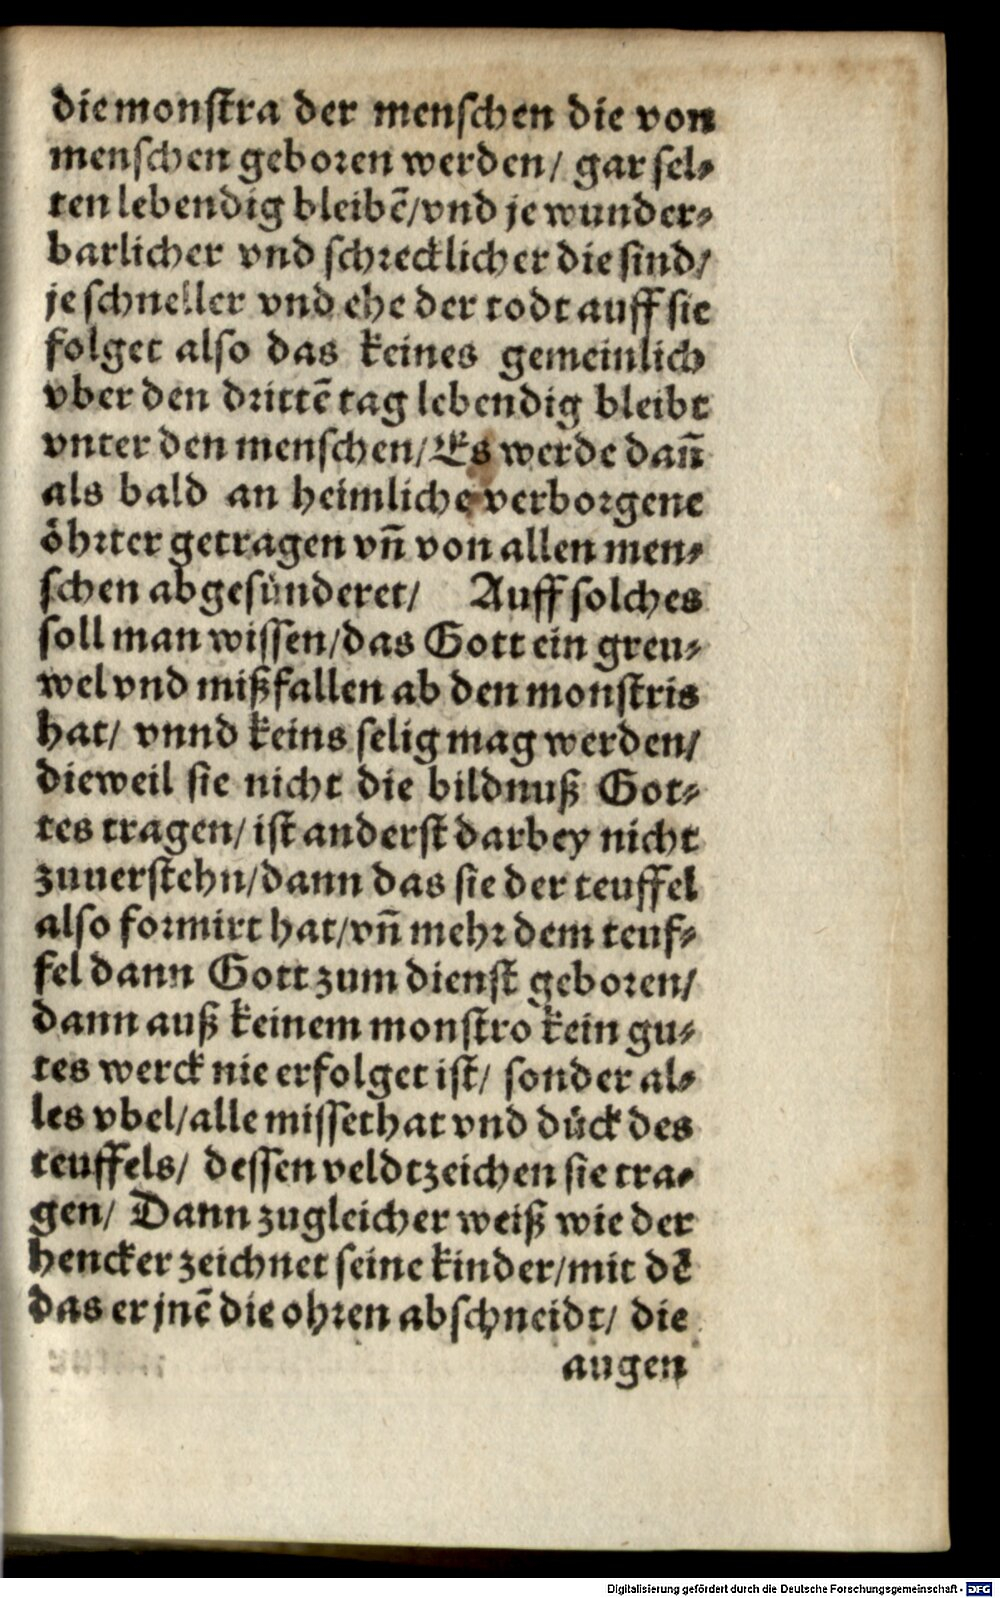 die monstra der menschen die von
menschen geboren werden/ gar sel⸗
ten lebendig bleibẽ/vnd je wunder⸗
barlicher vnd schrecklicher die sind/
je schneller vnd ehe der todt auff sie
folget also das keines gemeinlich
vber den drittẽ tag lebendig bleibt
vnter den menschen/Es werde dañ
als bald an heimliche verborgene
oͤhrter getragen vñ von allen men⸗
schen abgesünderet/ Auff solches
soll man wissen/das Gott ein greu⸗
wel vnd mißfallen ab den monstris
hat/ vnnd keins selig mag werden/
dieweil sie nicht die bildnuß Got⸗
tes tragen/ist anderst darbey nicht
zuuerstehn/dann das sie der teuffel
also formirt hat/vñ mehr dem teuf⸗
fel dann Gott zum dienst geboren/
dann auß keinem monstro kein gu⸗
tes werck nie erfolget ist/ sonder al⸗
les vbel/alle missethat vnd duͤck des
teuffels/ dessen veldtzeichen sie tra⸗
gen/ Dann zugleicher weiß wie der
hencker zeichnet seine kinder/mit dẽ
das er jnẽ die ohren abschneidt/ die
augen
Digitalisierung gefördert durch die Deutsche Forschungsgemeinschaft - DFG